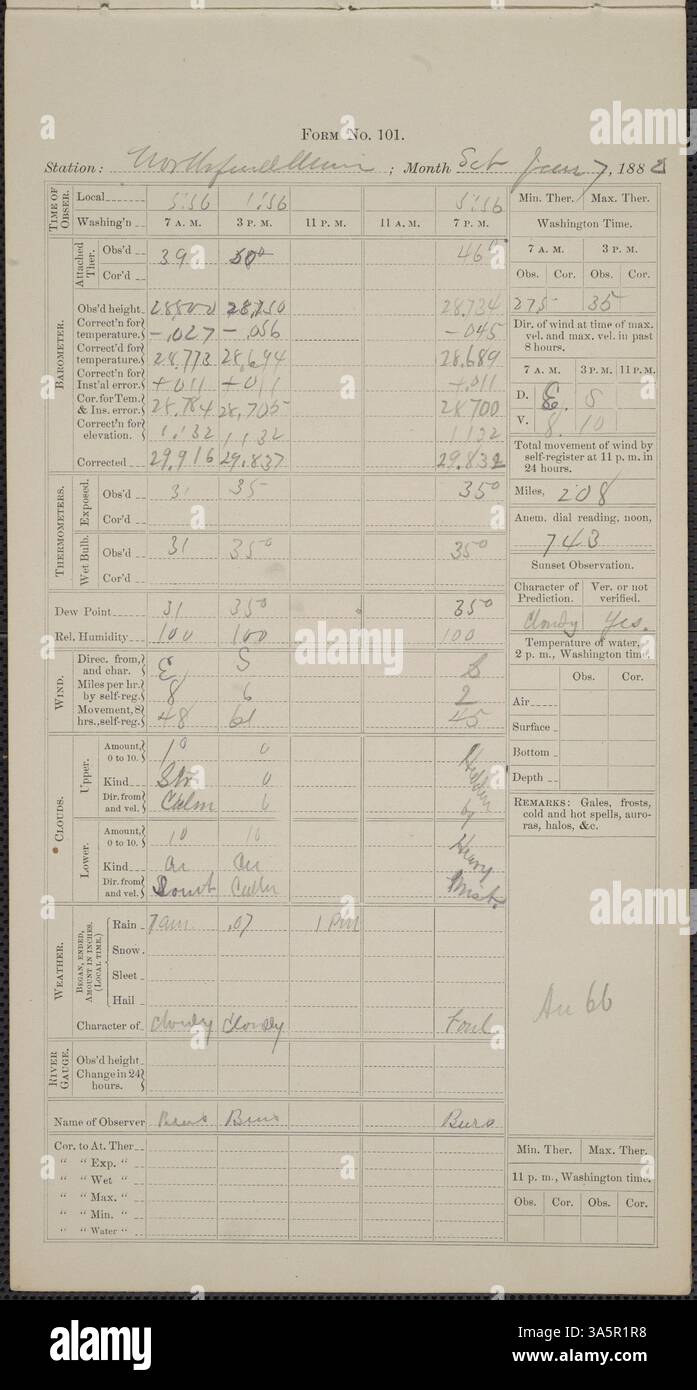 FORM NO. 101.
Station: Northfield Minn ; Month Sat Jan 7, 1882
TIME OF OBSER.
Local 5:56 1:56 5:56
Washing'n 7 A. M. 3 P. M. 11 P. M. 11 A. M. 7 P. M.
Min. Ther. Max. Ther.
Washington Time.
7 A. M. 3 P. M.
Obs. Cor. Obs. Cor.
27.5 35
BAROMETER.
Attached Ther.
Obs'd 39 50° 46°
Cor'd
Obs'd height 28,800 28,750 28,734
Correct'n for temperature. -.027 -.056 -045
Correct'd for temperature. 28.773 28.694 28.689
Correct'n for Inst'al error. +011 +011 +.011
Cor. for Tem. & Ins. error. 28.784 28.705 28700
Correct'n for elevation. 1.132 1132 1132
Corrected 29.916 29.837 29.832
Dir. of wind at time of max. vel. and max. vel. in past 8 hours.
7 A. M. 3 P. M. 11 P. M.
D. E. S
V. 8. 10
Total movement of wind by self-register at 11 p. m. in 24 hours.
Miles, 208
Anem. dial reading, noon,
743
THERMOMETERS.
Exposed.
Obs'd 31 35 35°
Cor'd
Wet Bulb.
Obs'd 31 35° 35°
Cor'd
Dew Point 31 35° 35°
Rel. Humidity 100 100 100
Sunset Observation.
Character of Prediction. Ver. or not verified.
Cloudy Yes.
Temperature of water, 2 p. m., Washington time.
Obs. Cor.
Air
Surface
Bottom
Depth
WIND.
Direc. from, and char. E S S
Miles per hr. by self-reg. 8 6 2
Movement, 8 hrs., self-reg. 48 61 45
CLOUDS.
Upper.
Amount, 0 to 10. 10 0
Kind Str 0
Dir. from and vel. Calm 6
Hidden by Heavy Mist.
Lower.
Amount, 0 to 10. 10 10
Kind Cu Cu
Dir. from and vel.
REMARKS: Gales, frosts, cold and hot spells, auroras, halos, &c.
66
WEATHER.
BEGAN, ENDED, AMOUNT IN INCHES. (LOCAL TIME.)
Rain 7am .07 1 Pm
Snow
Sleet
Hail
Character of Cloudy Cloudy Foul
RIVER GAUGE.
Obs'd height
Change in 24 hours.
Name of Observer
Cor. to At. Ther
" " Exp. "
" " Wet "
" " Max. "
" " Min. "
" " Water "
Min. Ther. Max. Ther.
11 p. m., Washington time.
Obs. Cor. Obs. Cor.
alamy
Image ID: 3A5R1R8
www.alamy.com